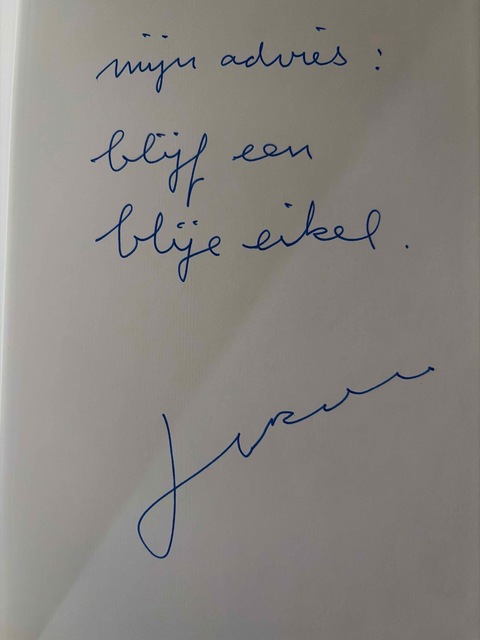 mijn advies :
blijf een
blije eikel.